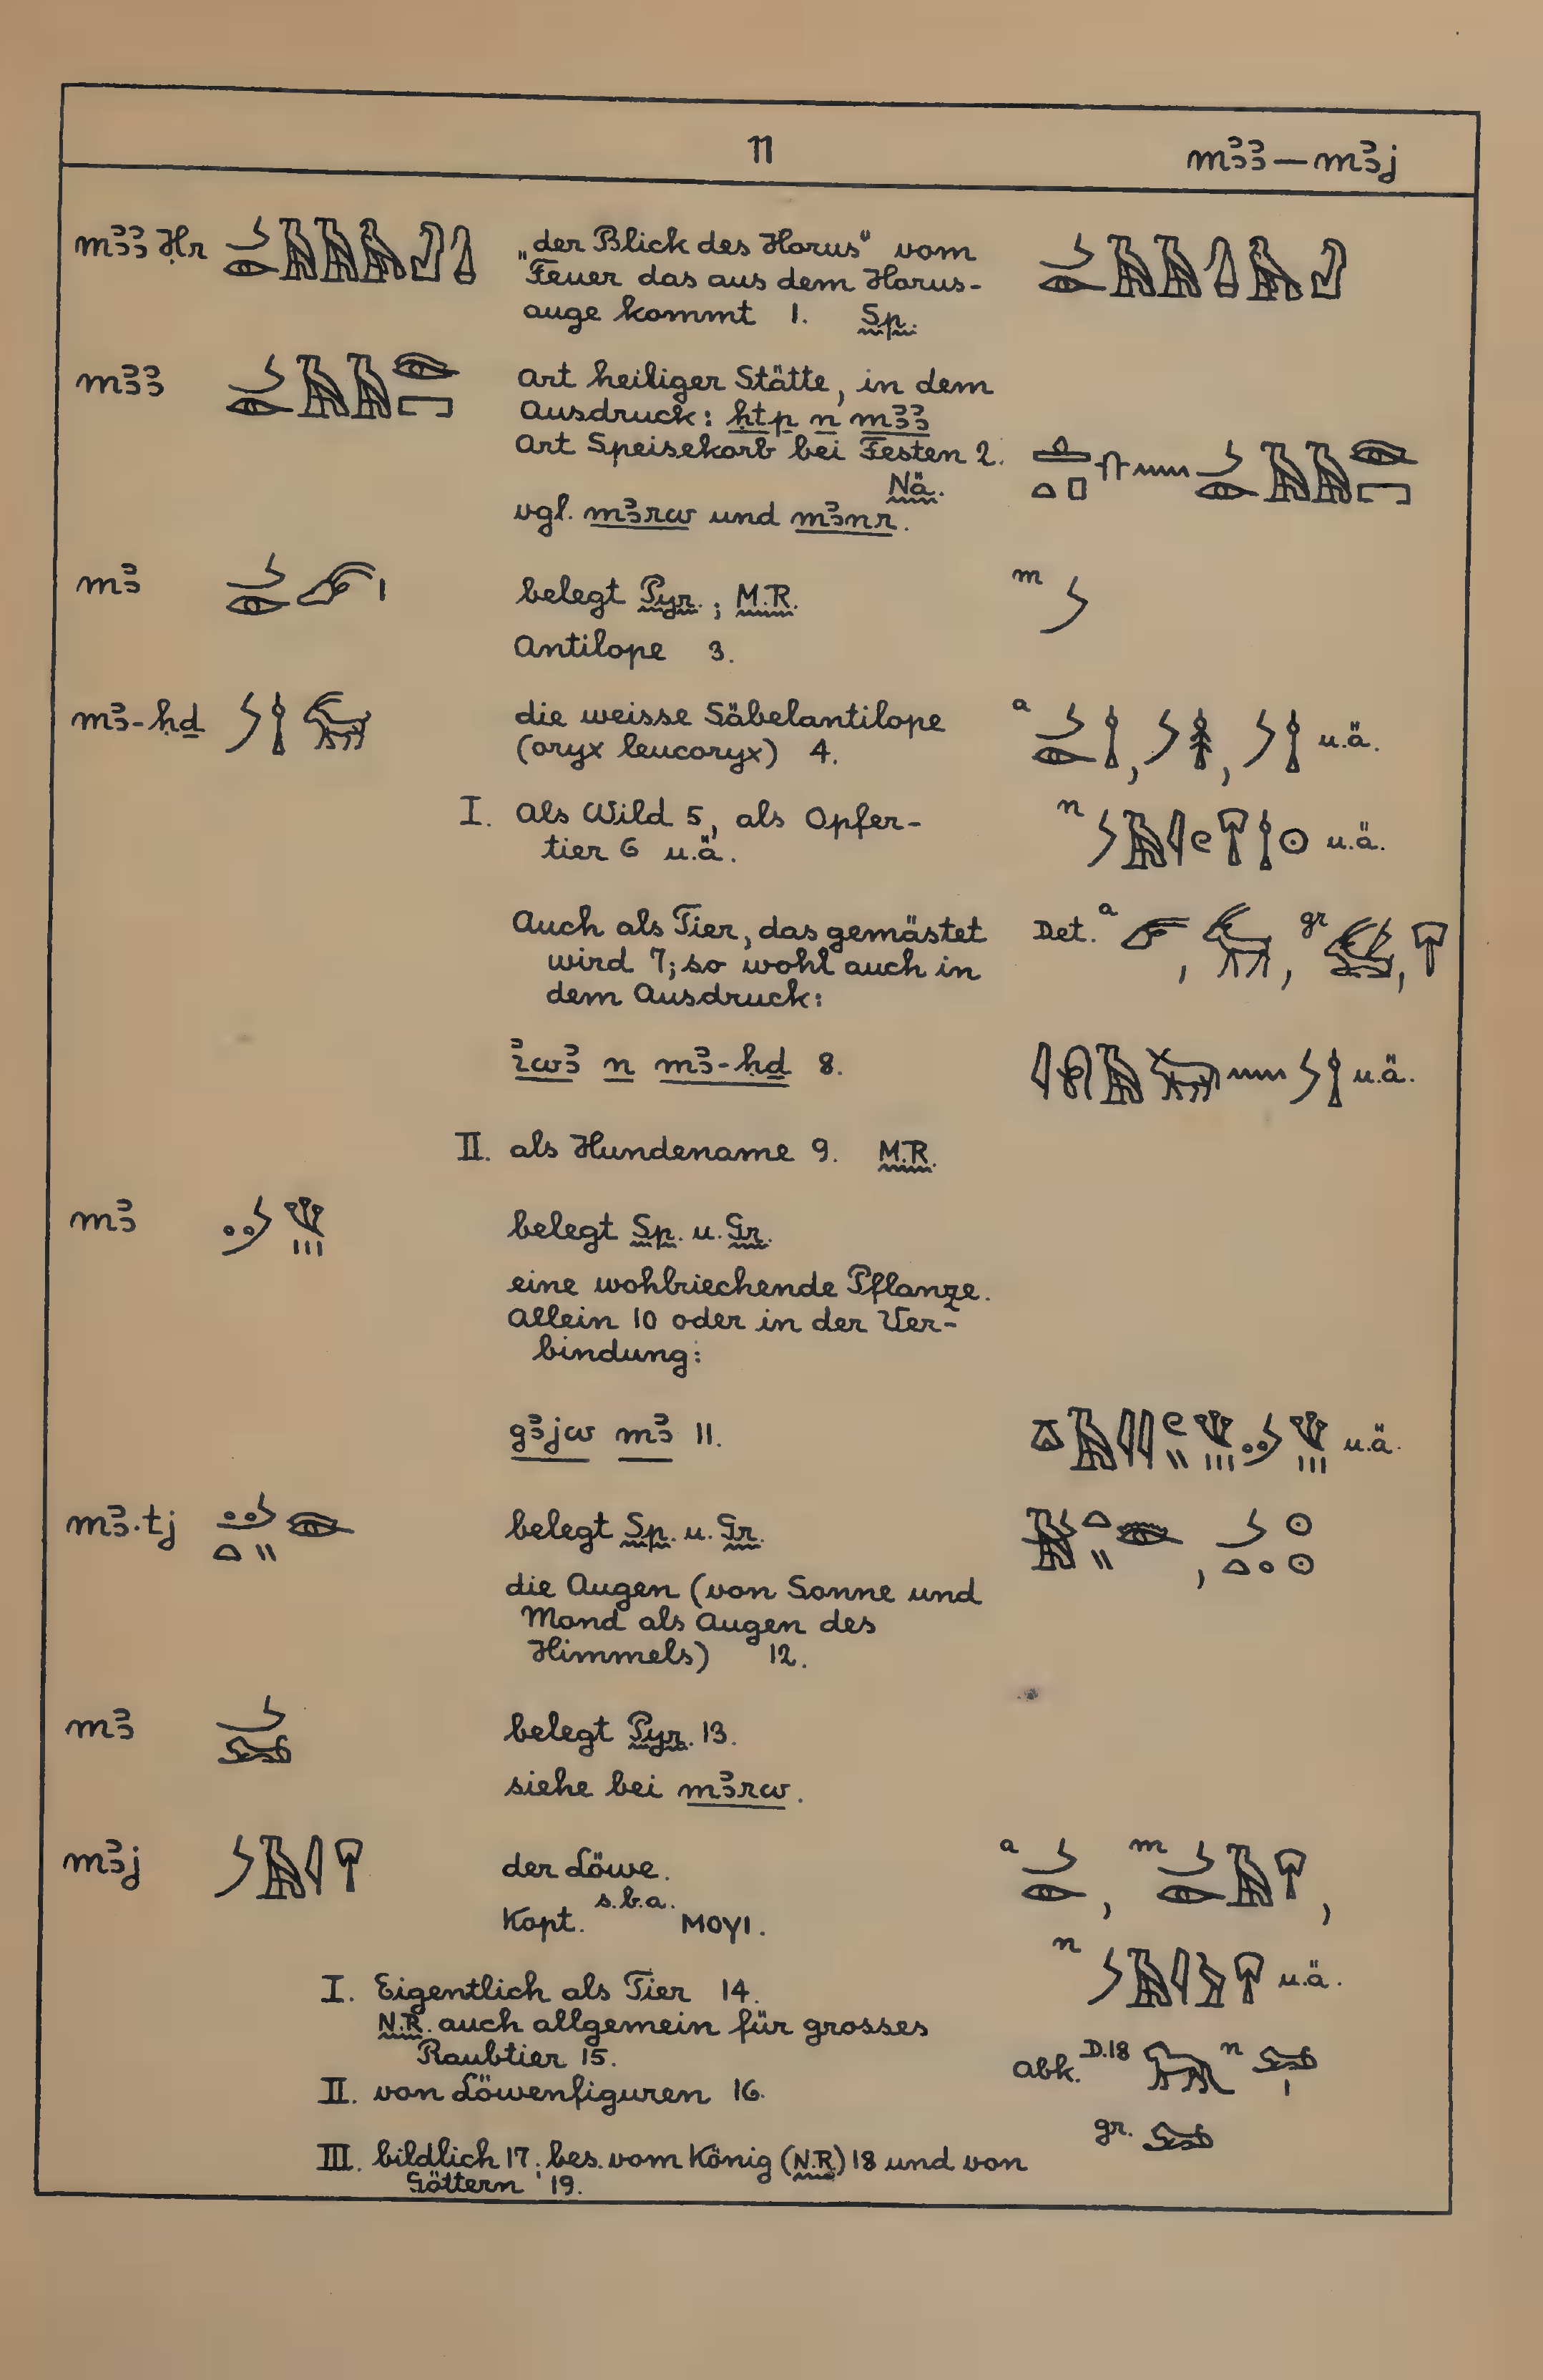 11 mꜣꜣ — mꜣj
mꜣꜣ Ḥr „der Blick des Horus“ vom
Feuer das aus dem Horus-
auge kommt 1. Sp.
mꜣꜣ Art heiliger Stätte, in dem
Ausdruck: ḥtp n mꜣꜣ
Art Speisekorb bei Festen 2.
Nä.
vgl. mꜣrw und mꜣnr.
mꜣ belegt Pyr.; M.R. m
Antilope 3.
mꜣ-ḥḏ die weisse Säbelantilope a
(oryx leucoryx) 4. , , u.ä.
I. Als Wild 5, als Opfer- n
tier 6 u.ä. u.ä.
Auch als Tier, das gemästet Det. a , , gr ,
wird 7; so wohl auch in
dem Ausdruck:
ı͗wꜣ n mꜣ-ḥḏ 8. u.ä.
II. als Hundename 9. M.R.
mꜣ belegt Sp. u. Gr.
eine wohlriechende Pflanze.
Allein 10 oder in der Ver-
bindung:
gꜣjw mꜣ 11. u.ä.
mꜣ.tj belegt Sp. u. Gr. ,
die Augen (von Sonne und
Mond als Augen des
Himmels) 12.
mꜣ belegt Pyr. 13.
siehe bei mꜣrw.
mꜣj der Löwe. a , m ,
Kopt. s.b.a. ⲙⲟⲩⲓ.
n u.ä.
I. Eigentlich als Tier 14.
N.R. auch allgemein für grosses
Raubtier 15.
Abk. D.18 n
II. von Löwenfiguren 16.
gr.
III. bildlich 17; bes. vom König (N.R.) 18 und von
Göttern 19.